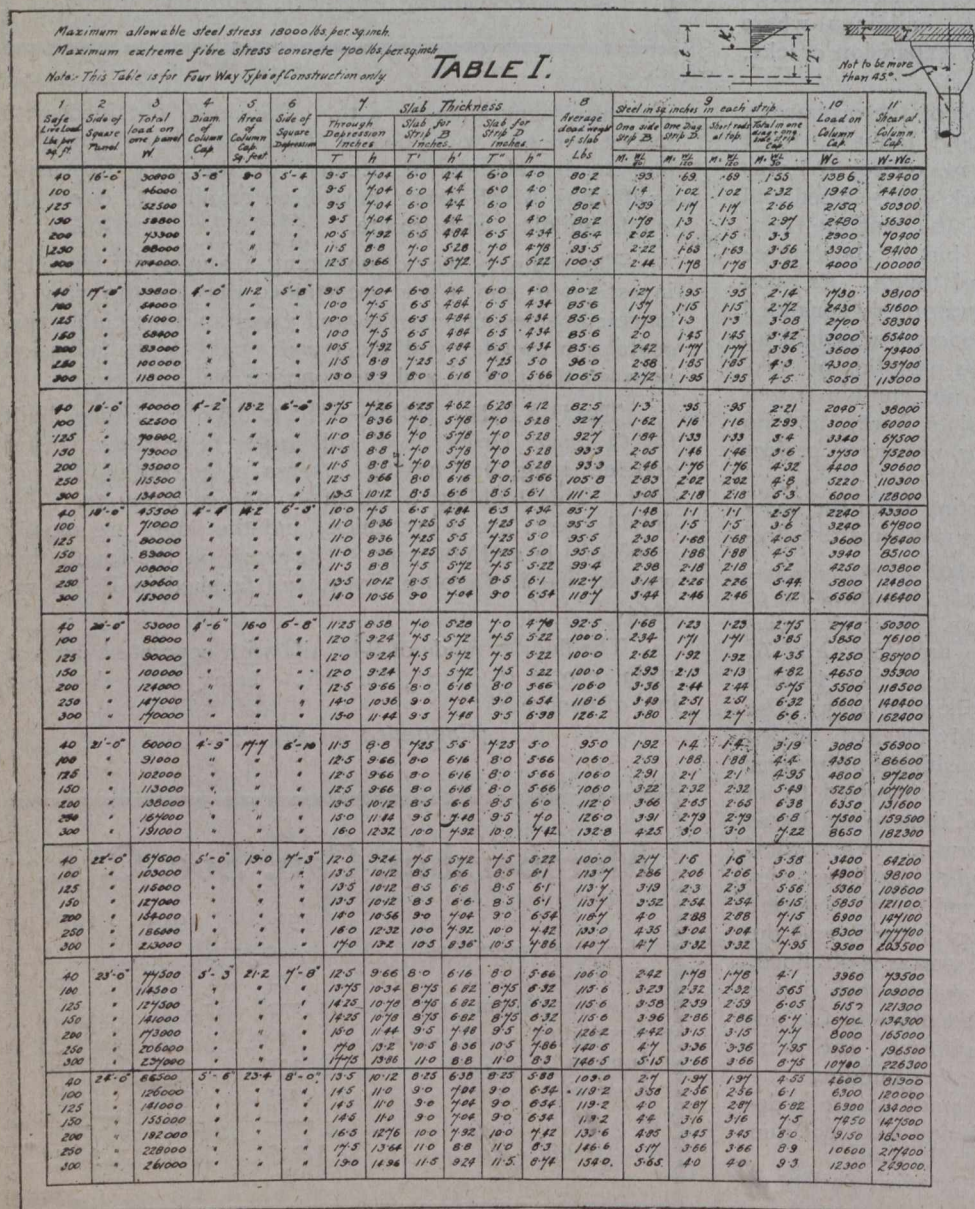 Maximum allowable steel stress 18000 lbs. per sq. inch.
Maximum extreme fibre stress concrete 700 lbs. per sq. inch
Note:- This Table is for Four Way Type of Construction only
TABLE I.
Not to be more than 45°.
1 2 3 4 5 6 7 8 9 10 11
Safe Live Load Lbs per sq. ft. Side of Square Panel Total load on one panel W Diam. of Column Cap. Area of Column Cap. Sq. feet Side of Square Depression Slab Thickness Average dead weight of slab Lbs Steel in sq. inches in each strip. Load on Column Cap. Shear at Column Cap.
Through Depression Inches Slab for Strip B Inches. Slab for Strip D inches. One side Strip B. One Diag Strip D. Short rods at top. Total in one diag + one side strip Cap.
T h T' h' T" h" Wc W-Wc
40 16'-0" 30800 3'-8" 9.0 5'-4 9.5 7.04 6.0 4.4 6.0 4.0 80.2 .93 .69 .69 1.55 1386 29400
100 " 46000 " " " 9.5 7.04 6.0 4.4 6.0 4.0 80.2 1.4 1.02 1.02 2.32 1940 44100
125 " 52500 " " " 9.5 7.04 6.0 4.4 6.0 4.0 80.2 1.59 1.17 1.17 2.66 2150 50300
150 " 58800 " " " 9.5 7.04 6.0 4.4 6.0 4.0 80.2 1.78 1.3 1.3 2.97 2480 56300
200 " 73300 " " " 10.5 7.92 6.5 4.84 6.5 4.34 86.4 2.02 1.5 1.5 3.3 2900 70400
250 " 88000 " " " 11.5 8.8 7.0 5.28 7.0 4.78 93.5 2.22 1.63 1.63 3.56 3900 84100
300 " 104000 " " " 12.5 9.66 7.5 5.72 7.5 5.22 100.5 2.44 1.78 1.78 3.82 4000 100000
40 17'-0" 39800 4'-0" 11.2 5'-8" 9.5 7.04 6.0 4.4 6.0 4.0 80.2 1.27 .95 .95 2.14 1730 38100
100 " 54000 " " " 10.0 7.5 6.5 4.84 6.5 4.34 85.6 1.57 1.15 1.15 2.72 2430 51600
125 " 61000 " " " 10.0 7.5 6.5 4.84 6.5 4.34 85.6 1.79 1.3 1.3 3.08 2700 58300
150 " 68400 " " " 10.0 7.5 6.5 4.84 6.5 4.34 85.6 2.0 1.45 1.45 3.42 3000 65400
200 " 83000 " " " 10.5 7.92 6.5 4.84 6.5 4.34 85.6 2.42 1.77 1.77 3.96 3600 79400
250 " 100000 " " " 11.5 8.8 7.25 5.5 7.25 5.0 96.0 2.58 1.85 1.85 4.3 4300 95700
300 " 118000 " " " 13.0 9.9 8.0 6.16 8.0 5.66 106.5 2.72 1.95 1.95 4.5 5050 113000
40 18'-0" 40000 4'-2" 13.2 6'-0" 9.75 7.26 6.25 4.62 6.25 4.12 82.5 1.3 .95 .95 2.21 2040 38000
100 " 62500 " " " 11.0 8.36 7.0 5.78 7.0 5.28 92.7 1.62 1.16 1.16 2.89 3000 60000
125 " 70800 " " " 11.0 8.36 7.0 5.78 7.0 5.28 92.7 1.84 1.33 1.33 3.4 3340 67500
150 " 79000 " " " 11.5 8.8 7.0 5.78 7.0 5.28 93.3 2.05 1.46 1.46 3.6 3750 75200
200 " 95000 " " " 11.5 8.8 7.0 5.78 7.0 5.28 93.3 2.46 1.76 1.76 4.32 4400 90600
250 " 115500 " " " 12.5 9.66 8.0 6.16 8.0 5.66 105.8 2.83 2.02 2.02 4.8 5220 110300
300 " 134000 " " " 13.5 10.12 8.5 6.6 8.5 6.1 111.2 3.05 2.18 2.18 5.3 6000 128000
40 19'-0" 45500 4'-4" 14.2 6'-3" 10.0 7.5 6.5 4.84 6.5 4.34 85.7 1.48 1.1 1.1 2.57 2240 43300
100 " 71000 " " " 11.0 8.36 7.25 5.5 7.25 5.0 95.5 2.05 1.5 1.5 3.6 3240 67800
125 " 80000 " " " 11.0 8.36 7.25 5.5 7.25 5.0 95.5 2.30 1.68 1.68 4.05 3600 76400
150 " 89000 " " " 11.0 8.36 7.25 5.5 7.25 5.0 95.5 2.56 1.88 1.88 4.5 3940 85100
200 " 108000 " " " 11.5 8.8 7.5 5.72 7.5 5.22 99.4 2.98 2.18 2.18 5.2 4250 103800
250 " 130600 " " " 13.5 10.12 8.5 6.6 8.5 6.1 112.7 3.14 2.26 2.26 5.44 5800 124800
300 " 153000 " " " 14.0 10.56 9.0 7.04 9.0 6.54 118.7 3.44 2.46 2.46 6.12 6560 146400
40 20'-0" 53000 4'-6" 16.0 6'-8" 11.25 8.58 7.0 5.28 7.0 4.78 92.5 1.68 1.23 1.23 2.75 2740 50300
100 " 80000 " " " 12.0 9.24 7.5 5.72 7.5 5.22 100.0 2.34 1.71 1.71 3.85 3850 76100
125 " 90000 " " " 12.0 9.24 7.5 5.72 7.5 5.22 100.0 2.62 1.92 1.92 4.35 4250 85700
150 " 100000 " " " 12.0 9.24 7.5 5.72 7.5 5.22 100.0 2.93 2.13 2.13 4.82 4650 95300
200 " 124000 " " " 12.5 9.66 8.0 6.16 8.0 5.66 106.0 3.36 2.44 2.44 5.75 5500 118500
250 " 147000 " " " 14.0 10.36 9.0 7.04 9.0 6.54 118.6 3.49 2.51 2.51 6.32 6600 140400
300 " 170000 " " " 15.0 11.44 9.5 7.48 9.5 6.98 126.2 3.80 2.7 2.7 6.6 7600 162400
40 21'-0" 60000 4'-9" 17.7 6'-10 11.5 8.8 7.25 5.5 7.25 5.0 95.0 1.92 1.4 1.4 3.19 3080 56900
100 " 91000 " " " 12.5 9.66 8.0 6.16 8.0 5.66 106.0 2.59 1.88 1.88 4.4 4350 86600
125 " 102000 " " " 12.5 9.66 8.0 6.16 8.0 5.66 106.0 2.91 2.1 2.1 4.95 4800 97200
150 " 113000 " " " 12.5 9.66 8.0 6.16 8.0 5.66 106.0 3.22 2.32 2.32 5.49 5250 107700
200 " 138000 " " " 13.5 10.12 8.5 6.6 8.5 6.0 112.0 3.66 2.65 2.65 6.38 6350 131600
250 " 167000 " " " 15.0 11.44 9.5 7.48 9.5 7.0 126.0 3.91 2.79 2.79 6.8 7500 159500
300 " 191000 " " " 16.0 12.32 10.0 7.92 10.0 7.42 132.8 4.25 3.0 3.0 7.22 8650 182300
40 22'-0" 67600 5'-0" 19.0 7'-3" 12.0 9.24 7.5 5.72 7.5 5.22 100.0 2.17 1.6 1.6 3.58 3400 64200
100 " 103000 " " " 13.5 10.12 8.5 6.6 8.5 6.1 113.7 2.86 2.06 2.06 5.0 4900 98100
125 " 115000 " " " 13.5 10.12 8.5 6.6 8.5 6.1 113.7 3.19 2.3 2.3 5.56 5360 109600
150 " 127000 " " " 13.5 10.12 8.5 6.6 8.5 6.1 113.7 3.52 2.54 2.54 6.15 5850 121100
200 " 154000 " " " 14.0 10.56 9.0 7.04 9.0 6.54 118.7 4.0 2.88 2.88 7.15 6900 147100
250 " 186000 " " " 16.0 12.32 10.0 7.92 10.0 7.42 133.0 4.35 3.04 3.04 7.4 8300 177700
300 " 213000 " " " 17.0 13.2 10.5 8.36 10.5 7.86 140.7 4.7 3.32 3.32 7.95 9500 203500
40 23'-0" 77500 5'-3 21.2 7'-8" 12.5 9.66 8.0 6.16 8.0 5.66 106.0 2.42 1.78 1.78 4.1 3960 73500
100 " 114500 " " " 13.75 10.34 8.75 6.82 8.75 6.32 115.6 3.23 2.32 2.32 5.65 5500 109000
125 " 127500 " " " 14.25 10.78 8.75 6.82 8.75 6.32 115.6 3.58 2.59 2.59 6.05 6150 121300
150 " 141000 " " " 14.25 10.78 8.75 6.82 8.75 6.32 115.6 3.96 2.86 2.86 6.7 6700 134300
200 " 173000 " " " 15.0 11.44 9.5 7.48 9.5 7.0 126.2 4.42 3.15 3.15 7.4 8000 165000
250 " 206000 " " " 17.0 13.2 10.5 8.36 10.5 7.86 140.6 4.7 3.36 3.36 7.95 9500 196500
300 " 237000 " " " 17.75 13.86 11.0 8.8 11.0 8.3 146.5 5.15 3.66 3.66 8.75 10700 226300
40 24'-0" 86500 5'-6" 23.4 8'-0" 13.5 10.12 8.25 6.38 8.25 5.88 109.0 2.7 1.97 1.97 4.55 4600 81900
100 " 126000 " " " 14.5 11.0 9.0 7.04 9.0 6.54 119.2 3.58 2.56 2.56 6.1 6300 120000
125 " 141000 " " " 14.5 11.0 9.0 7.04 9.0 6.54 119.2 4.0 2.87 2.87 6.82 6900 134000
150 " 155000 " " " 14.5 11.0 9.0 7.04 9.0 6.54 119.2 4.4 3.16 3.16 7.5 7450 147500
200 " 192000 " " " 16.5 12.76 10.0 7.92 10.0 7.42 132.6 4.85 3.45 3.45 8.0 9150 183000
250 " 228000 " " " 17.5 13.64 11.0 8.8 11.0 8.3 146.6 5.17 3.66 3.66 8.9 10600 217400
300 " 261000 " " " 19.0 14.96 11.5 9.24 11.5 8.74 154.0 5.65 4.0 4.0 9.3 12300 249000